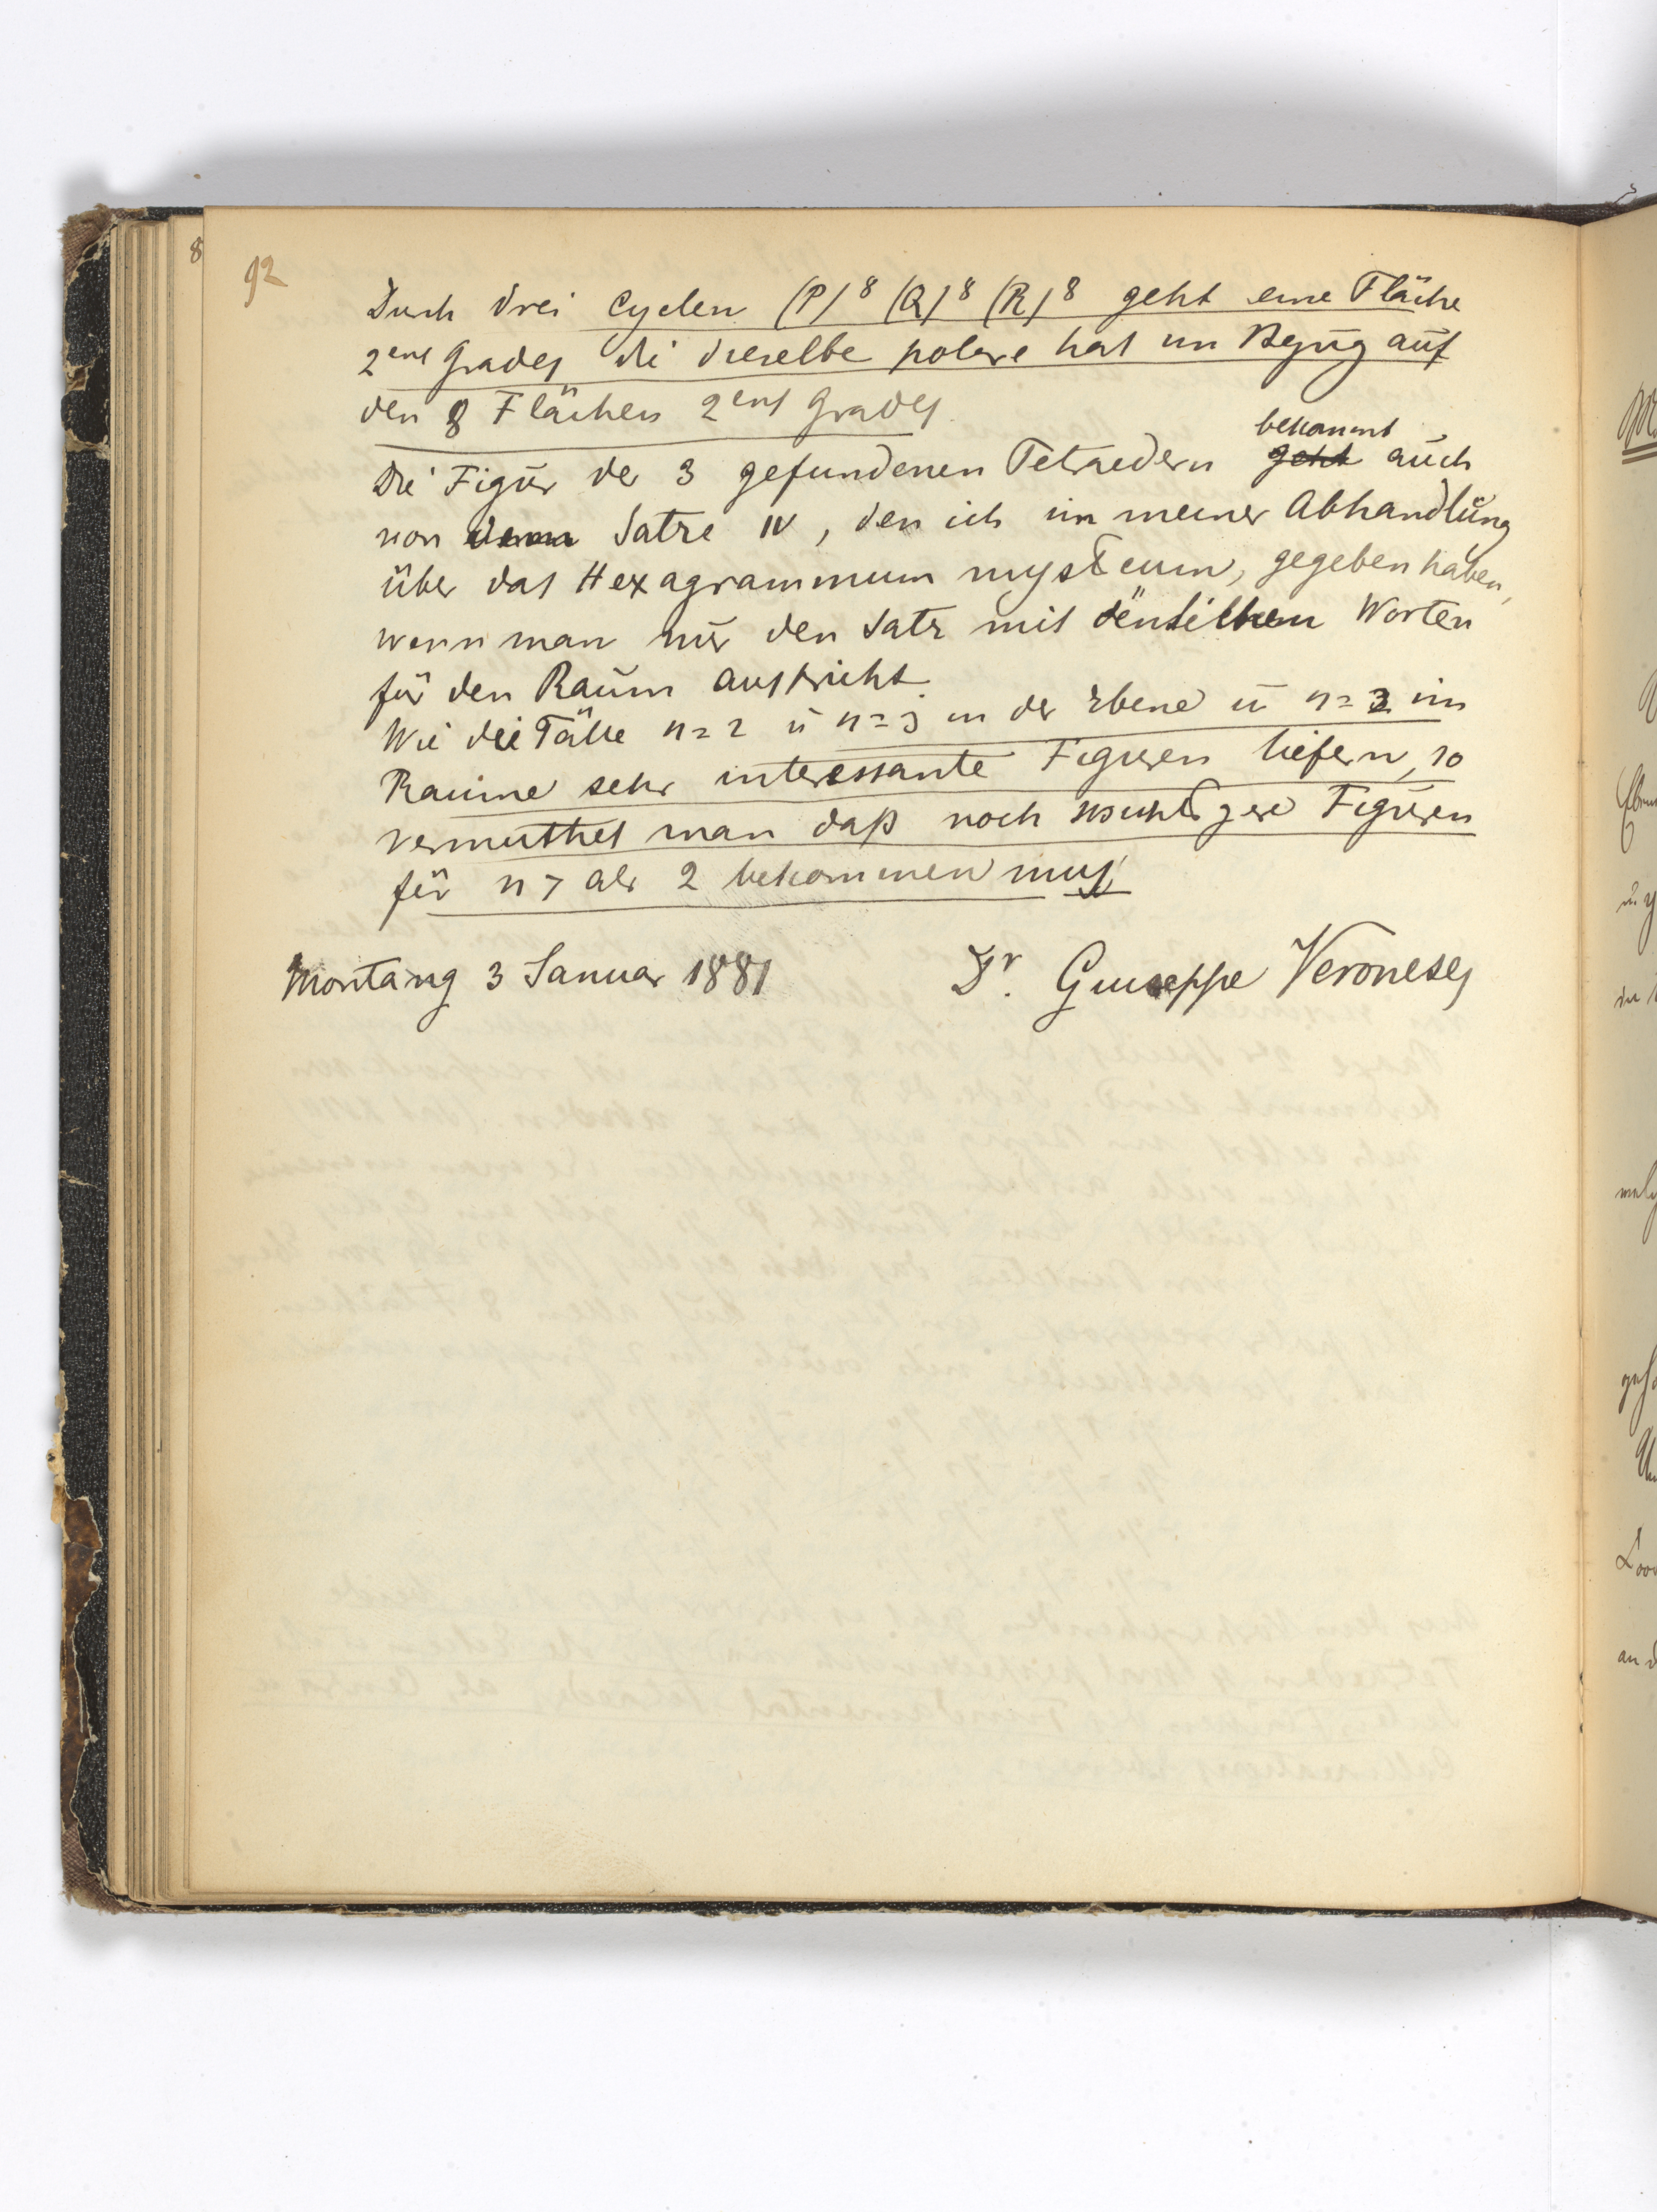 92
8
Durch drei Cyclen (P)8 (Q)8 (R)8 geht eine Fläche
2ens Grades die dieselbe polare hat im Bezug auf
den 8 Flächen 2ens Grades.
bekommt
Die Figur der 3 gefundenen Tetraedern geht auch
von dem Satze IV, den ich in meiner Abhandlung
über das Hexagrammum mysticum, gegeben haben,
wenn man nur den Satz mit Worten
für den Raum ausspricht.
Wie die Fälle n=2 u n=3 in der Ebene u n=2 im
Raume sehr interessante Figuren liefern, so
vermuthet man daß noch wichtigere Figuren
für n > als 2 bekommen muß
Montang 3 Januar 1881 Dr. Giuseppe Veronese